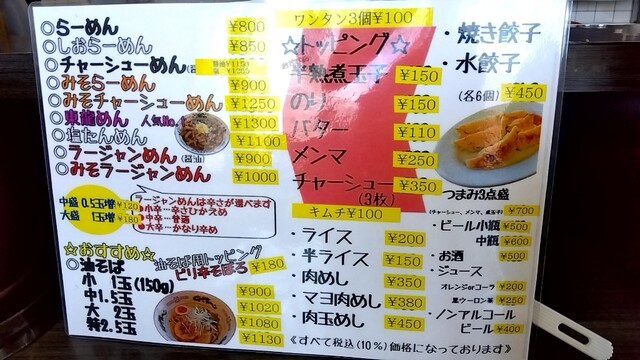 ○らーめん ¥800
○しおらーめん ¥850
○チャーシューめん
○みそらーめん ¥900
○みそチャーシューめん ¥1250
○東龍めん 人気No.1 ¥1300
○塩たんめん ¥1100
○ラージャンめん (醤油) ¥900
○みそラージャンめん ¥1000
中盛 0.5玉増 ¥120
大盛 1玉増 ¥180
ラージャンめんは辛さが選べます
●小辛…辛さひかえめ
●中辛…普通
●大辛…かなり辛め
☆おすすめ☆
○油そば
小 1玉(150g) ¥900
中1.5玉 ¥1020
大 2玉 ¥1080
特2.5玉 ¥1130
油そば用トッピング
ピリ辛そぼろ ¥180
ワンタン3個¥100
☆トッピング☆
半熟煮玉子 ¥150
のり ¥150
バター ¥110
メンマ ¥250
チャーシュー ¥350
(3枚)
キムチ¥100
・ライス ¥200
・半ライス ¥150
・肉めし ¥350
・マヨ肉めし ¥380
・肉玉めし ¥450
・焼き餃子
・水餃子
(各6個) ¥450
つまみ3点盛
(チャーシュー、メンマ、煮玉子) ¥700
・ビール小瓶 ¥500
中瓶 ¥600
・お酒 ¥500
・ジュース
オレンジorコーラ ¥200
黒ウーロン茶 ¥250
・ノンアルコール
ビール ¥400
《すべて税込(10%)価格になっております》